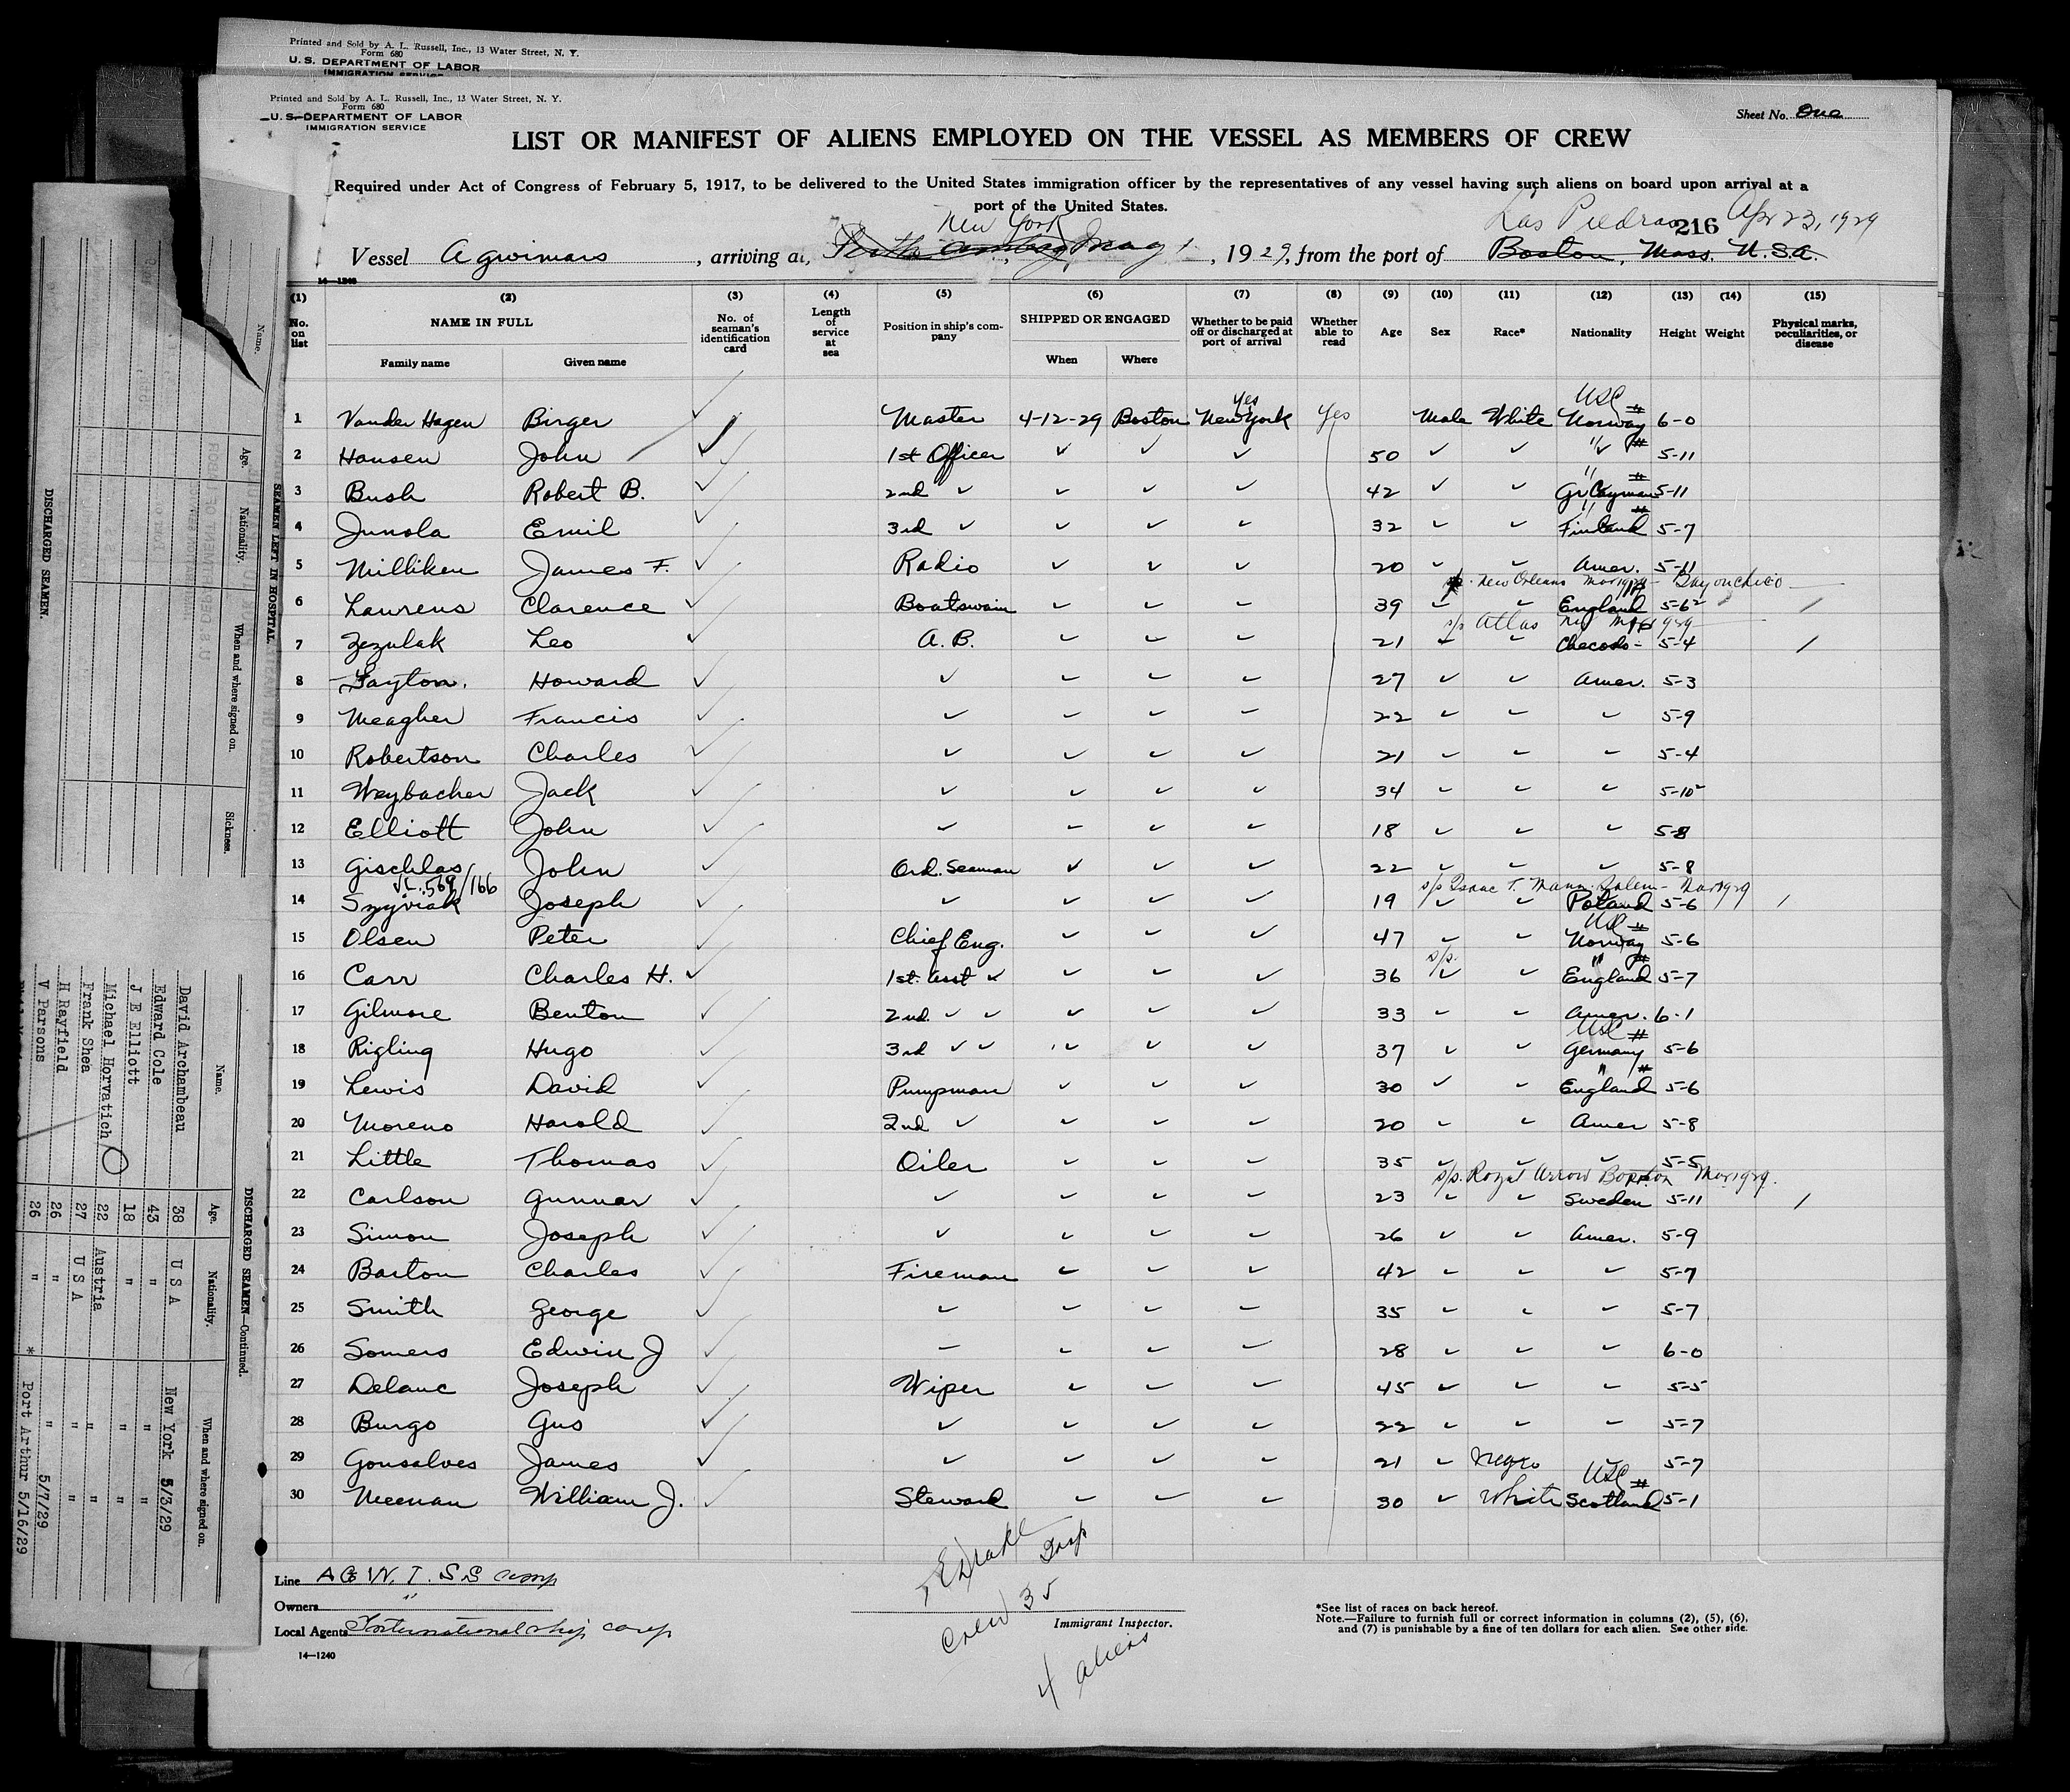 Printed and Sold by A. L. Russell, Inc., 13 Water Street, N. Y.
Form 680
U. S. DEPARTMENT OF LABOR
IMMIGRATION SERVICE
Printed and Sold by A. L. Russell, Inc., 13 Water Street, N. Y.
Form 680
U. S. DEPARTMENT OF LABOR
IMMIGRATION SERVICE
Sheet No. One
LIST OR MANIFEST OF ALIENS EMPLOYED ON THE VESSEL AS MEMBERS OF CREW
Required under Act of Congress of February 5, 1917, to be delivered to the United States immigration officer by the representatives of any vessel having such aliens on board upon arrival at a
port of the United States.
New York Las Piedras 216 Apr 23, 1929
Vessel Agwimars, arriving at, Perth Amboy, May 1, 1929, from the port of Boston, Mass. U.S.A.
14—1240
(1) (2) (3) (4) (5) (6) (7) (8) (9) (10) (11) (12) (13) (14) (15)
No. on list NAME IN FULL Family name Given name No. of seaman's identification card Length of service at sea Position in ship's company SHIPPED OR ENGAGED When Where Whether to be paid off or discharged at port of arrival Whether able to read Age Sex Race* Nationality Height Weight Physical marks, peculiarities, or disease
Yes USC
1 Vander Hagen Birger Master 4-12-29 Boston New York Yes Male White Norway 6-0
2 Hansen John 1st Officer 50 " 5-11
3 Bush Robert B. 2nd 42 " Gr. Cayman 5-11
4 Junola Emil 3rd 32 " Finland 5-7
5 Milliken James F. Radio 20 Amer. 5-11
s/s. New Orleans
6 Laurens Clarence Boatswain 39 England 5-6²
s/s Atlas
7 Zezulak Leo A. B. 21 Checoslo- 5-4
8 Layton. Howard 27 Amer. 5-3
9 Meagher Francis 22 5-9
10 Robertson Charles 21 5-4
11 Weybacher Jack 34 5-10²
12 Elliott John 18 5-8
13 Gischlas John Ord. Seaman 22 5-8
569/166 s/s Isaac T. Mann. Salem-
14 Szyviak Joseph 19 Poland 5-6
USC
15 Olsen Peter Chief Eng. 47 Norway 5-6
s/s. "
16 Carr Charles H. 1st. Asst 36 England 5-7
17 Gilmore Benton 2nd. 33 Amer. 6-1
USC
18 Rigling Hugo 3rd 37 Germany 5-6
"
19 Lewis David Pumpman 30 England 5-6
20 Moreno Harold 2nd 20 Amer 5-8
21 Little Thomas Oiler 35 5-5
s/s. Royal Arrow Boston
22 Carlson Gunnar 23 Sweden 5-11
23 Simon Joseph 26 Amer. 5-9
24 Barton Charles Fireman 42 5-7
25 Smith George 35 5-7
26 Somers Edwin J 28 6-0
27 Delanc Joseph Wiper 45 5-5
28 Burgo Gus 22 5-7
29 Gonsalves James 21 Negro 5-7
USC
30 Meenan William J. Steward 30 White Scotland 5-1
Line A G W. I. S S Comp
Owners "
Local Agents International Ship Corp
14—1240
Insp
Crew 35
Immigrant Inspector.
4 aliens
*See list of races on back hereof.
Note.—Failure to furnish full or correct information in columns (2), (5), (6),
and (7) is punishable by a fine of ten dollars for each alien. See other side.
SEAMEN LEFT IN HOSPITAL
Name. Age. Nationality. When and where signed on. Sickness.
DISCHARGED SEAMEN.
DISCHARGED SEAMEN—Continued.
Name. Age. Nationality. When and where signed on.
David Archambeau 38 U S A New York 5/3/29
Edward Cole 43 " " "
J E Elliott 18 " " "
Michael Horvatich 22 Austria " "
Frank Shea 27 U S A " "
H Rayfield 26 " " 5/7/29
V Parsons 26 " * Port Arthur 5/16/29